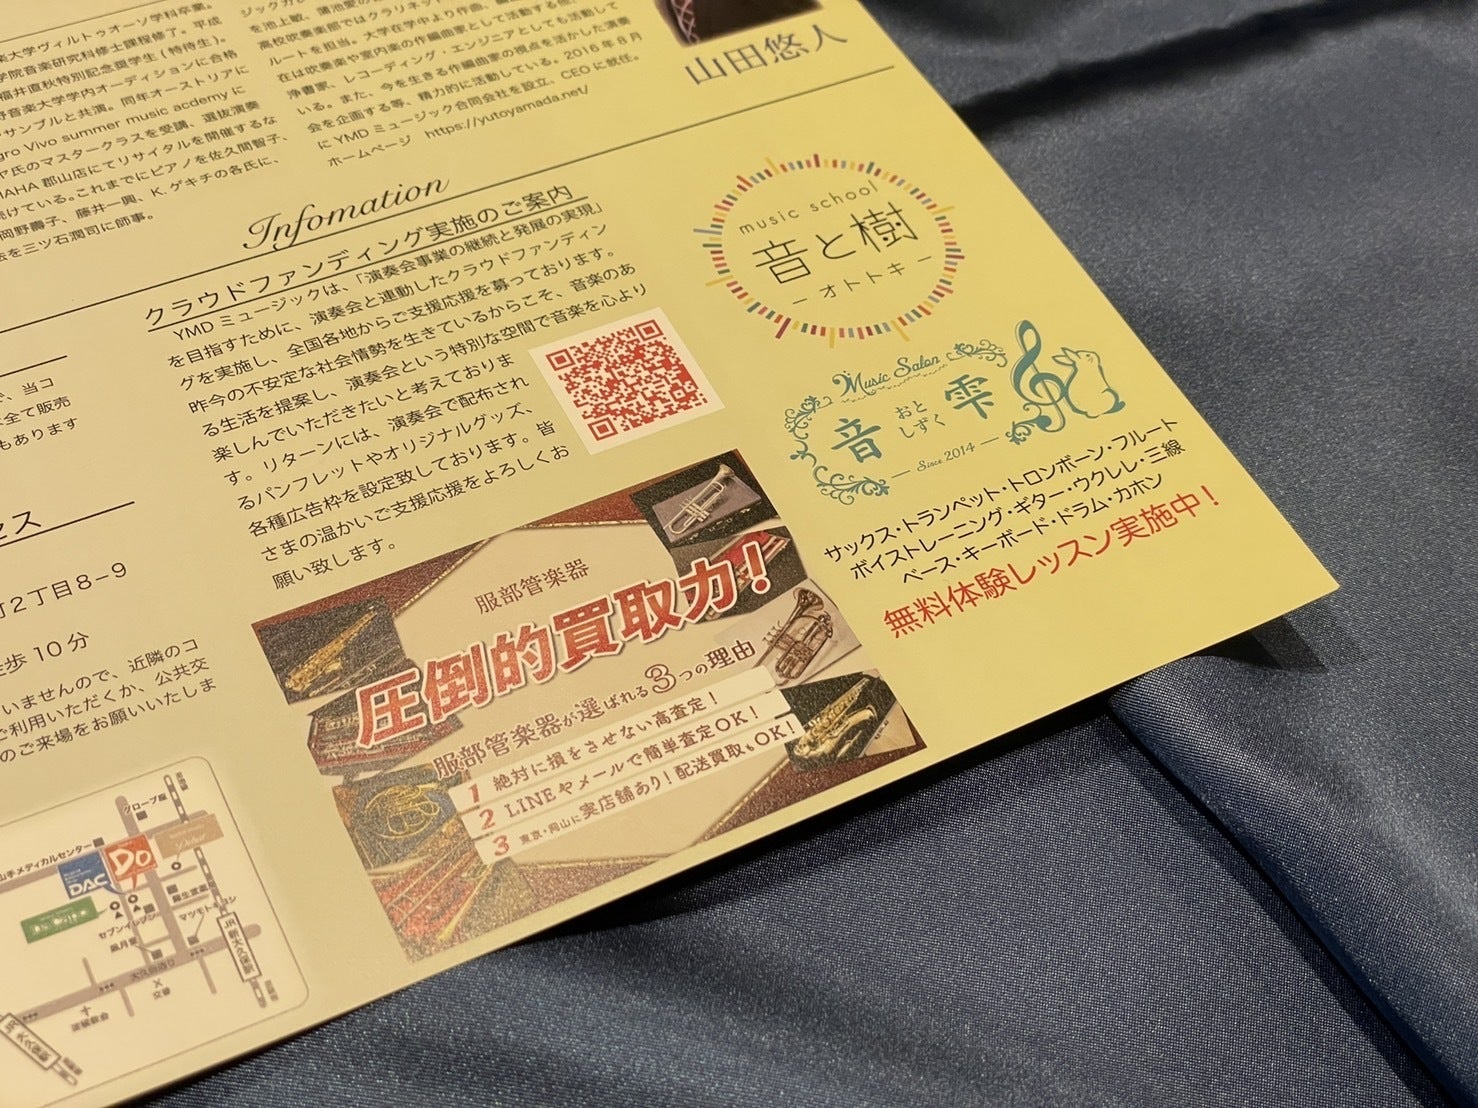 楽大学ヴィルトゥオーソ学科卒業。
学院音楽研究科修士課程修了。平成
福井直秋特別記念奨学生(特待生)。
野音楽大学学内オーディションに合格
サンブルと共演。同年オーストリアに
gro Vivo summer music acdemyに
ヤ氏のマスタークラスを受講、選抜演奏
MAHA郡山店にてリサイタルを開催するな
続けている。これまでにピアノを佐久間智子、
岡野壽子、藤井一興、K.ゲキチの各氏に、
法を三ツ石潤司に師事。
高校吹奏楽部ではクラリネッ
ルートを担当。大学在学中より作曲、
在は吹奏楽や室内楽の作編曲家として活動する他、
浄書家、レコーディング・エンジニアとしても活動して
いる。また、今を生きる作編曲家の視点を活かした演奏
会を企画する等、精力的に活動している。2016年8月
にYMDミュージック合同会社を設立、CEOに就任。
ホームページ https://yutoyamada.net/
山田悠人
Infomation
クラウドファンディング実施のご案内
YMDミュージックは、「演奏会事業の継続と発展の実現」
を目指すために、演奏会と連動したクラウドファンディン
グを実施し、全国各地からご支援応援を募っております。
昨今の不安定な社会情勢を生きているからこそ、音楽のあ
る生活を提案し、演奏会という特別な空間で音楽を心より
楽しんでいただきたいと考えておりま
す。リターンには、演奏会で配布され
るパンフレットやオリジナルグッズ、
各種広告枠を設定致しております。皆
さまの温かいご支援応援をよろしくお
願い致します。
music school
音と樹
ーオトトキー
Music Salon
音 おと しずく 雫
Since 2014
サックス・トランペット・トロンボーン・フルート
ボイストレーニング・ギター・ウクレレ・三線
ベース・キーボード・ドラム・カホン
無料体験レッスン実施中!
服部管楽器
圧倒的買取力!
服部管楽器が選ばれる3つの理由
1 絶対に損をさせない高査定!
2 LINEやメールで簡単査定OK!
3 東京・岡山に実店舗あり!配送買取もOK!
、当コ
全て販売
もあります
セス
町2丁目8-9
徒歩10分
いませんので、近隣のコ
ご利用いただくか、公共交
のご来場をお願いいたしま
グローブ座
山手メディカルセンター
DAC
Do
セブンイレブン
マツモトキヨシ
大久保通り
交番
JR新大久保駅